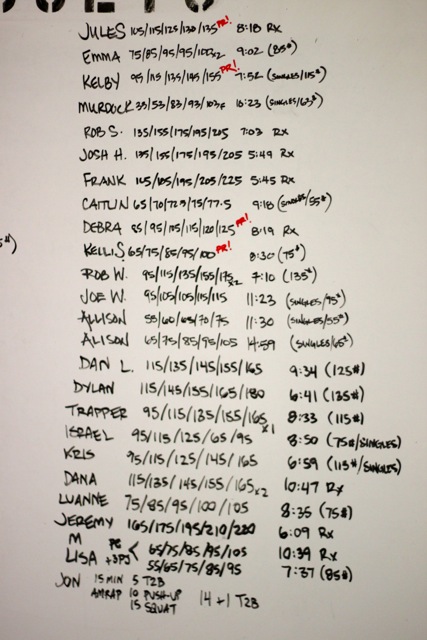 JULES 105/115/125/130/135 PR! 8:18 Rx
EMMA 75/85/95/95/103x2 9:02 (85#)
KELBY 95/115/135/145/155 PR! 7:52 (SINGLES/115#)
MURDOCK 33/53/83/93/103F 10:23 (SINGLES/63#)
ROB S. 135/155/175/195/205 7:03 Rx
JOSH H. 135/155/175/195/205 5:49 Rx
FRANK 165/185/195/205/225 5:45 Rx
CAITLIN 65/70/72.5/75/77.5 9:18 (SINGLES/55#)
DEBRA 85/95/105/115/120/125 PR! 8:19 Rx
KELLI S 65/75/85/95/100 PR! 8:30 (75#)
ROB W. 95/115/135/155/175x2 7:10 (135#)
JOE W. 95/105/105/115/115 11:23 (SINGLES/95#)
ALLISON 55/60/65/70/75 11:30 (SINGLES/55#)
ALISON 65/75/85/95/105 14:59 (SINGLES/65#)
#)
DAN L. 115/135/145/155/165 9:34 (125#)
DYLAN 115/145/155/165/180 6:41 (135#)
TRAPPER 95/115/135/155/165x1 8:33 (115#)
ISRAEL 95/115/125/65/95 8:50 (75#/SINGLES)
KRIS 95/115/125/145/165 6:59 (115#/SINGLES)
DANA 115/135/145/155/165x2 10:47 Rx
LUANNE 75/85/95/100/105 8:35 (75#)
JEREMY 165/175/195/210/220 6:09 Rx
M PC 65/75/85/95/105 10:39 Rx
LISA +3PJ 55/65/75/85/95 7:37 (85#)
JON 15 MIN 5 T2B
AMRAP 10 PUSH-UP 14 + 1 T2B
15 SQUAT